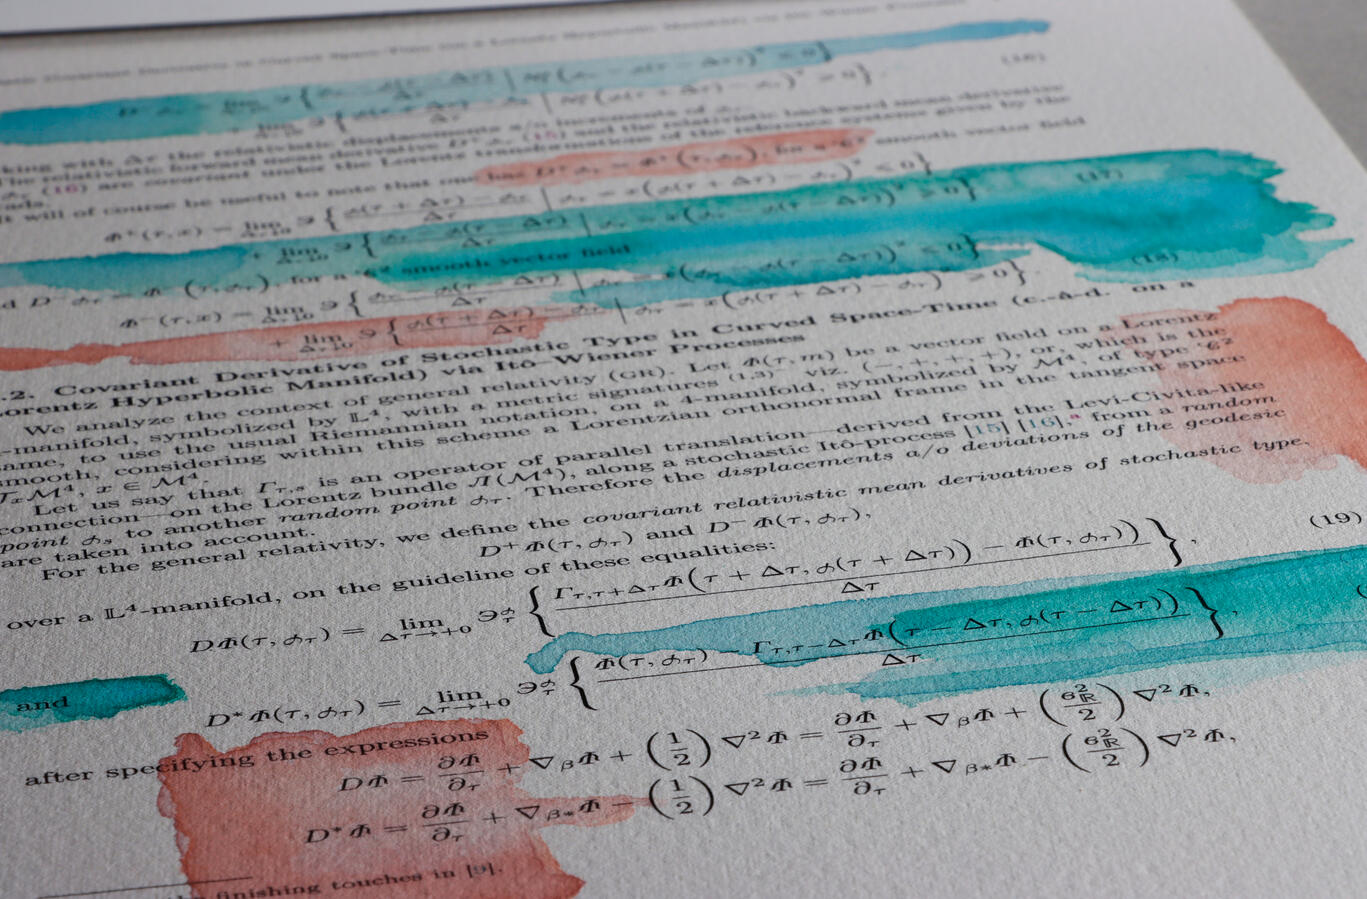 D⁺ = lim Э { Δτ | ( (τ − Δτ) )² ≤ 0 }
+ lim Э { (τ + Δτ) − / Δτ | ( (τ + Δτ) − )² > 0 }. (16)
king with Δτ the relativistic displacements a/o increments of
The relativistic forward mean derivative (15) and the relativistic backward mean derivative
(16) are covariant under the Lorentz transformations of the reference systems given by the
It will of course be useful to note that one has D⁺ 𝜙τ = Φ⁺(τ, 𝜙τ), for a 𝒞² smooth vector field
Φ⁺(τ, x) = lim Δτ↓0 Э { 𝜙(τ + Δτ) − 𝜙τ / Δτ | 𝜙τ = x(𝜙(τ + Δτ) − 𝜙τ)² ≤ 0 }
+ lim Δτ↓0 Э { 𝜙τ − 𝜙(τ − Δτ) / Δτ | 𝜙τ = x(𝜙τ − 𝜙(τ − Δτ))² > 0 } (17)
d D⁻ 𝜙τ = Φ⁻(τ, 𝜙τ), for a 𝒞² smooth vector field
Φ⁻(τ, x) = lim Δτ↓0 Э { 𝜙τ − 𝜙(τ − Δτ) / Δτ | 𝜙τ = x(𝜙τ − 𝜙(τ − Δτ))² ≤ 0 }
+ lim Δτ↓0 Э { 𝜙(τ + Δτ) − 𝜙τ / Δτ | 𝜙τ = x(𝜙(τ + Δτ) − 𝜙τ)² > 0 }. (18)
.2. Covariant Derivative of Stochastic Type in Curved Space-Time (c.-à-d. on a
orentz Hyperbolic Manifold) via Itô-Wiener Processes
We analyze the context of general relativity (GR). Let Φ(τ, m) be a vector field on a Lorentz
-manifold, symbolized by 𝕃⁴, with a metric signatures (1.3)⁻ viz. (−, +, +, +), or, which is the
ame, to use the usual Riemannian notation, on a 4-manifold, symbolized by ℳ⁴, of type 𝒞²
smooth, considering within this scheme a Lorentzian orthonormal frame in the tangent space
𝒯ₓℳ⁴, x ∈ ℳ⁴.
Let us say that Γτ,s is an operator of parallel translation—derived from the Levi-Civita-like
connection—on the Lorentz bundle Л(ℳ⁴), along a stochastic Itô-process [15] [16],ᵃ from a random
point 𝜙s to another random point 𝜙τ. Therefore the displacements a/o deviations of the geodesic
are taken into account.
For the general relativity, we define the covariant relativistic mean derivatives of stochastic type,
D⁺Φ(τ, 𝜙τ) and D⁻Φ(τ, 𝜙τ),
over a 𝕃⁴-manifold, on the guideline of these equalities:
DΦ(τ, 𝜙τ) = lim Δτ→+0 Э𝜙τ { Γτ,τ+ΔτΦ(τ + Δτ, 𝜙(τ + Δτ)) − Φ(τ, 𝜙τ)) / Δτ }, (19)
and
D*Φ(τ, 𝜙τ) = lim Δτ→+0 Э𝜙τ { Φ(τ, 𝜙τ) − Γτ,τ−ΔτΦ(τ − Δτ, 𝜙(τ − Δτ)) / Δτ },
after specifying the expressions
DΦ = ∂Φ/∂τ + ∇βΦ + (1/2) ∇²Φ = ∂Φ/∂τ + ∇βΦ + (ϭ²ℝ/2) ∇²Φ,
D*Φ = ∂Φ/∂τ + ∇β*Φ − (1/2) ∇²Φ = ∂Φ/∂τ + ∇β*Φ − (ϭ²ℝ/2) ∇²Φ,
finishing touches in [9].